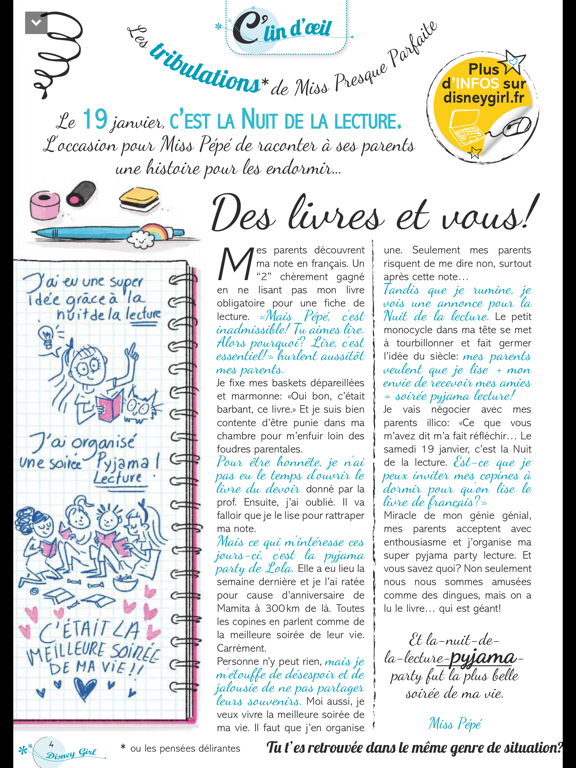 C'lin d'œil
Les tribulations* de Miss Presque Parfaite
Plus
d'INFOS sur
disneygirl.fr
Le 19 janvier, c'est la Nuit de la lecture.
L'occasion pour Miss Pépé de raconter à ses parents
une histoire pour les endormir...
Des livres et vous!
J'ai eu une super
idée grâce à la
nuit de la lecture
J'ai organisé
une soirée Pyjama!
Lecture!
C'ÉTAIT LA
MEILLEURE SOIRÉE
DE MA VIE!!
Mes parents découvrent
ma note en français. Un
“2” chèrement gagné
en ne lisant pas mon livre
obligatoire pour une fiche de
lecture. «Mais Pépé, c'est
inadmissible! Tu aimes lire.
Alors pourquoi? Lire, c'est
essentiel!» hurlent aussitôt
mes parents.
Je fixe mes baskets dépareillées
et marmonne: «Oui bon, c'était
barbant, ce livre.» Et je suis bien
contente d'être punie dans ma
chambre pour m'enfuir loin des
foudres parentales.
Pour être honnête, je n'ai
pas eu le temps d'ouvrir le
livre du devoir donné par la
prof. Ensuite, j'ai oublié. Il va
falloir que je le lise pour rattraper
ma note.
Mais ce qui m'intéresse ces
jours-ci, c'est la pyjama
party de Lola. Elle a eu lieu la
semaine dernière et je l'ai ratée
pour cause d'anniversaire de
Mamita à 300 km de là. Toutes
les copines en parlent comme de
la meilleure soirée de leur vie.
Carrément.
Personne n'y peut rien, mais je
m'étouffe de désespoir et de
jalousie de ne pas partager
leurs souvenirs. Moi aussi, je
veux vivre la meilleure soirée de
ma vie. Il faut que j'en organise
une. Seulement mes parents
risquent de me dire non, surtout
après cette note...
Tandis que je rumine, je
vois une annonce pour la
Nuit de la lecture. Le petit
monocycle dans ma tête se met
à tourbillonner et fait germer
l'idée du siècle: mes parents
veulent que je lise + mon
envie de recevoir mes amies
= soirée pyjama lecture!
Je vais négocier avec mes
parents illico: «Ce que vous
m'avez dit m'a fait réfléchir... Le
samedi 19 janvier, c'est la Nuit
de la lecture. Est-ce que je
peux inviter mes copines à
dormir pour qu'on lise le
livre de français?»
Miracle de mon génie génial,
mes parents acceptent avec
enthousiasme et j'organise ma
super pyjama party lecture. Et
vous savez quoi? Non seulement
nous nous sommes amusées
comme des dingues, mais on a
lu le livre... qui est géant!
Et la-nuit-de-
la-lecture-pyjama-
party fut la plus belle
soirée de ma vie.
Miss Pépé
4
Disney Girl
* ou les pensées délirantes
Tu t'es retrouvée dans le même genre de situation?